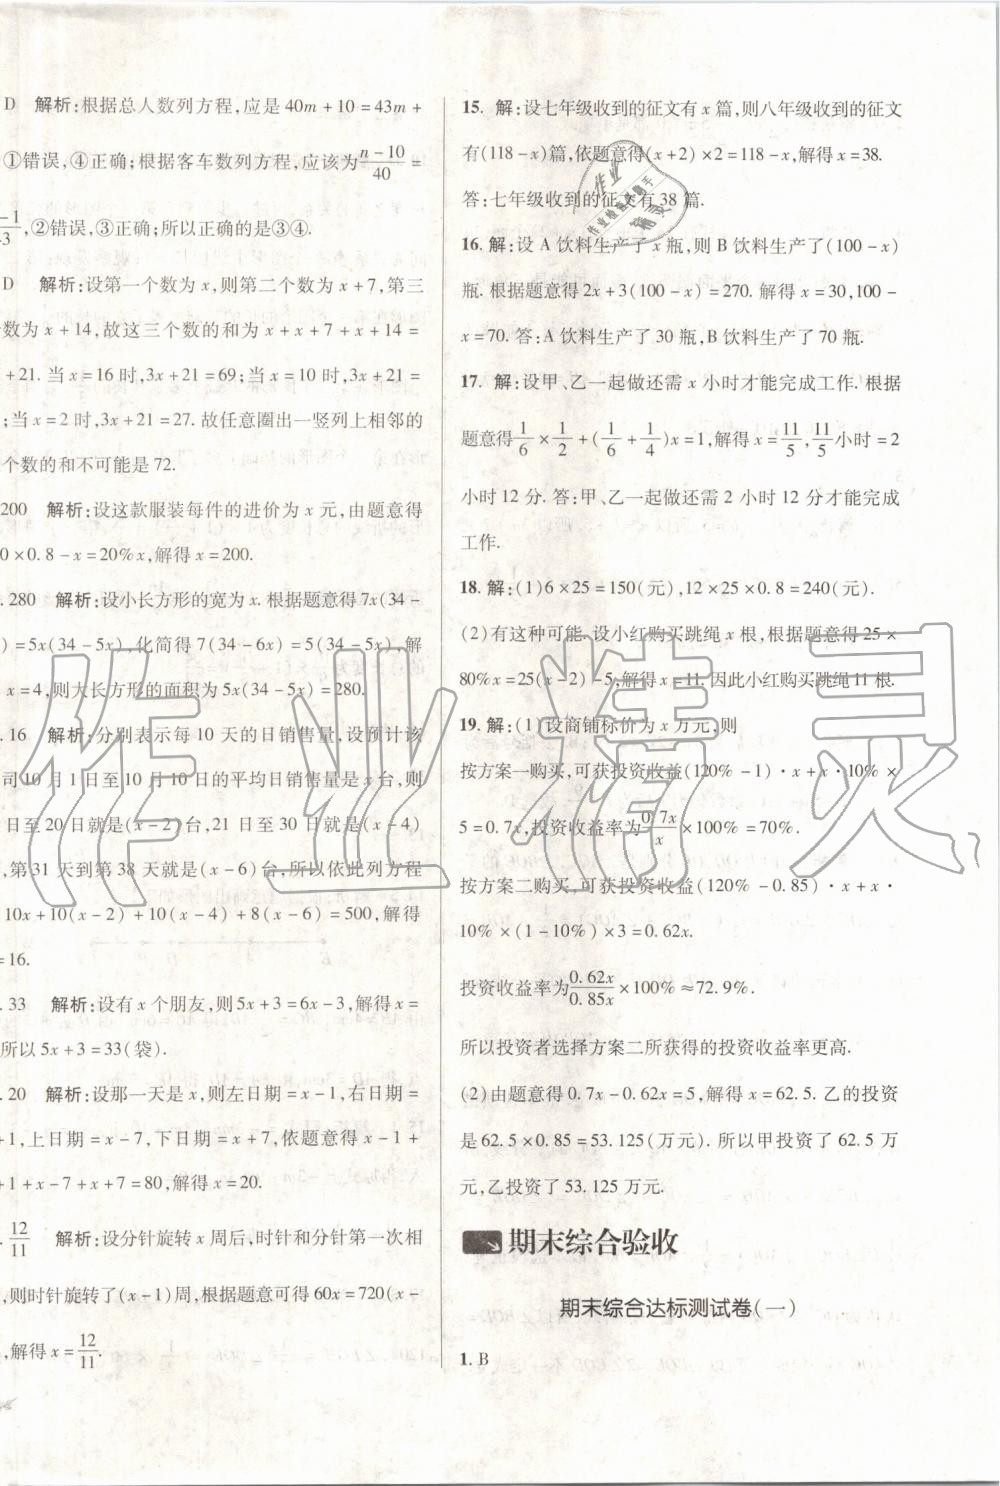 D 解析:根据总人数列方程,应是 40m+10=43m+
①错误,④正确;根据客车数列方程,应该为\frac{n-10}{40}=
\frac{-1}{43},②错误,③正确;所以正确的是③④.
D 解析:设第一个数为 x,则第二个数为 x+7,第三
数为 x+14,故这三个数的和为 x+x+7+x+14=
+21.当 x=16 时,3x+21=69;当 x=10 时,3x+21=
;当 x=2 时,3x+21=27.故任意圈出一竖列上相邻的
个数的和不可能是 72.
200 解析:设这款服装每件的进价为 x 元,由题意得
0×0.8-x=20%x,解得 x=200.
.280 解析:设小长方形的宽为 x.根据题意得 7x(34-
)=5x(34-5x),化简得 7(34-6x)=5(34-5x),解
x=4,则大长方形的面积为 5x(34-5x)=280.
.16 解析:分别表示每 10 天的日销售量,设预计该
司 10 月 1 日至 10 月 10 日的平均日销售量是 x 台,则
日至 20 日就是(x-2)台,21 日至 30 日就是(x-4)
,第 31 天到第 38 天就是(x-6)台,所以依此列方程
10x+10(x-2)+10(x-4)+8(x-6)=500,解得
=16.
.33 解析:设有 x 个朋友,则 5x+3=6x-3,解得 x=
所以 5x+3=33(袋).
.20 解析:设那一天是 x,则左日期=x-1,右日期=
+1,上日期=x-7,下日期=x+7,依题意得 x-1+
+1+x-7+x+7=80,解得 x=20.
.\frac{12}{11} 解析:设分针旋转 x 周后,时针和分针第一次相
,则时针旋转了(x-1)周,根据题意可得 60x=720(x-
,解得 x=\frac{12}{11}.
15. 解:设七年级收到的征文有 x 篇,则八年级收到的征文
有(118-x)篇,依题意得(x+2)×2=118-x,解得 x=38.
答:七年级收到的征文有 38 篇.
16. 解:设 A 饮料生产了 x 瓶,则 B 饮料生产了(100-x)
瓶.根据题意得 2x+3(100-x)=270.解得 x=30,100-
x=70.答:A 饮料生产了 30 瓶,B 饮料生产了 70 瓶.
17. 解:设甲、乙一起做还需 x 小时才能完成工作.根据
题意得\frac{1}{6}×\frac{1}{2}+(\frac{1}{6}+\frac{1}{4})x=1,解得 x=\frac{11}{5},\frac{11}{5}小时=2
小时 12 分.答:甲、乙一起做还需 2 小时 12 分才能完成
工作.
18. 解:(1)6×25=150(元),12×25×0.8=240(元).
(2)有这种可能.设小红购买跳绳 x 根,根据题意得 25×
80%x=25(x-2)-5,解得 x=11.因此小红购买跳绳 11 根.
19. 解:(1)设商铺标价为 x 万元,则
按方案一购买,可获投资收益(120%-1)·x+x·10%×
5=0.7x,投资收益率为\frac{0.7x}{x}×100%=70%.
按方案二购买,可获投资收益(120%-0.85)·x+x·
10%×(1-10%)×3=0.62x.
投资收益率为\frac{0.62x}{0.85x}×100%≈72.9%.
所以投资者选择方案二所获得的投资收益率更高.
(2)由题意得 0.7x-0.62x=5,解得 x=62.5.乙的投资
是 62.5×0.85=53.125(万元).所以甲投资了 62.5 万
元,乙投资了 53.125 万元.
期末综合验收
期末综合达标测试卷(一)
1. B
作业精灵